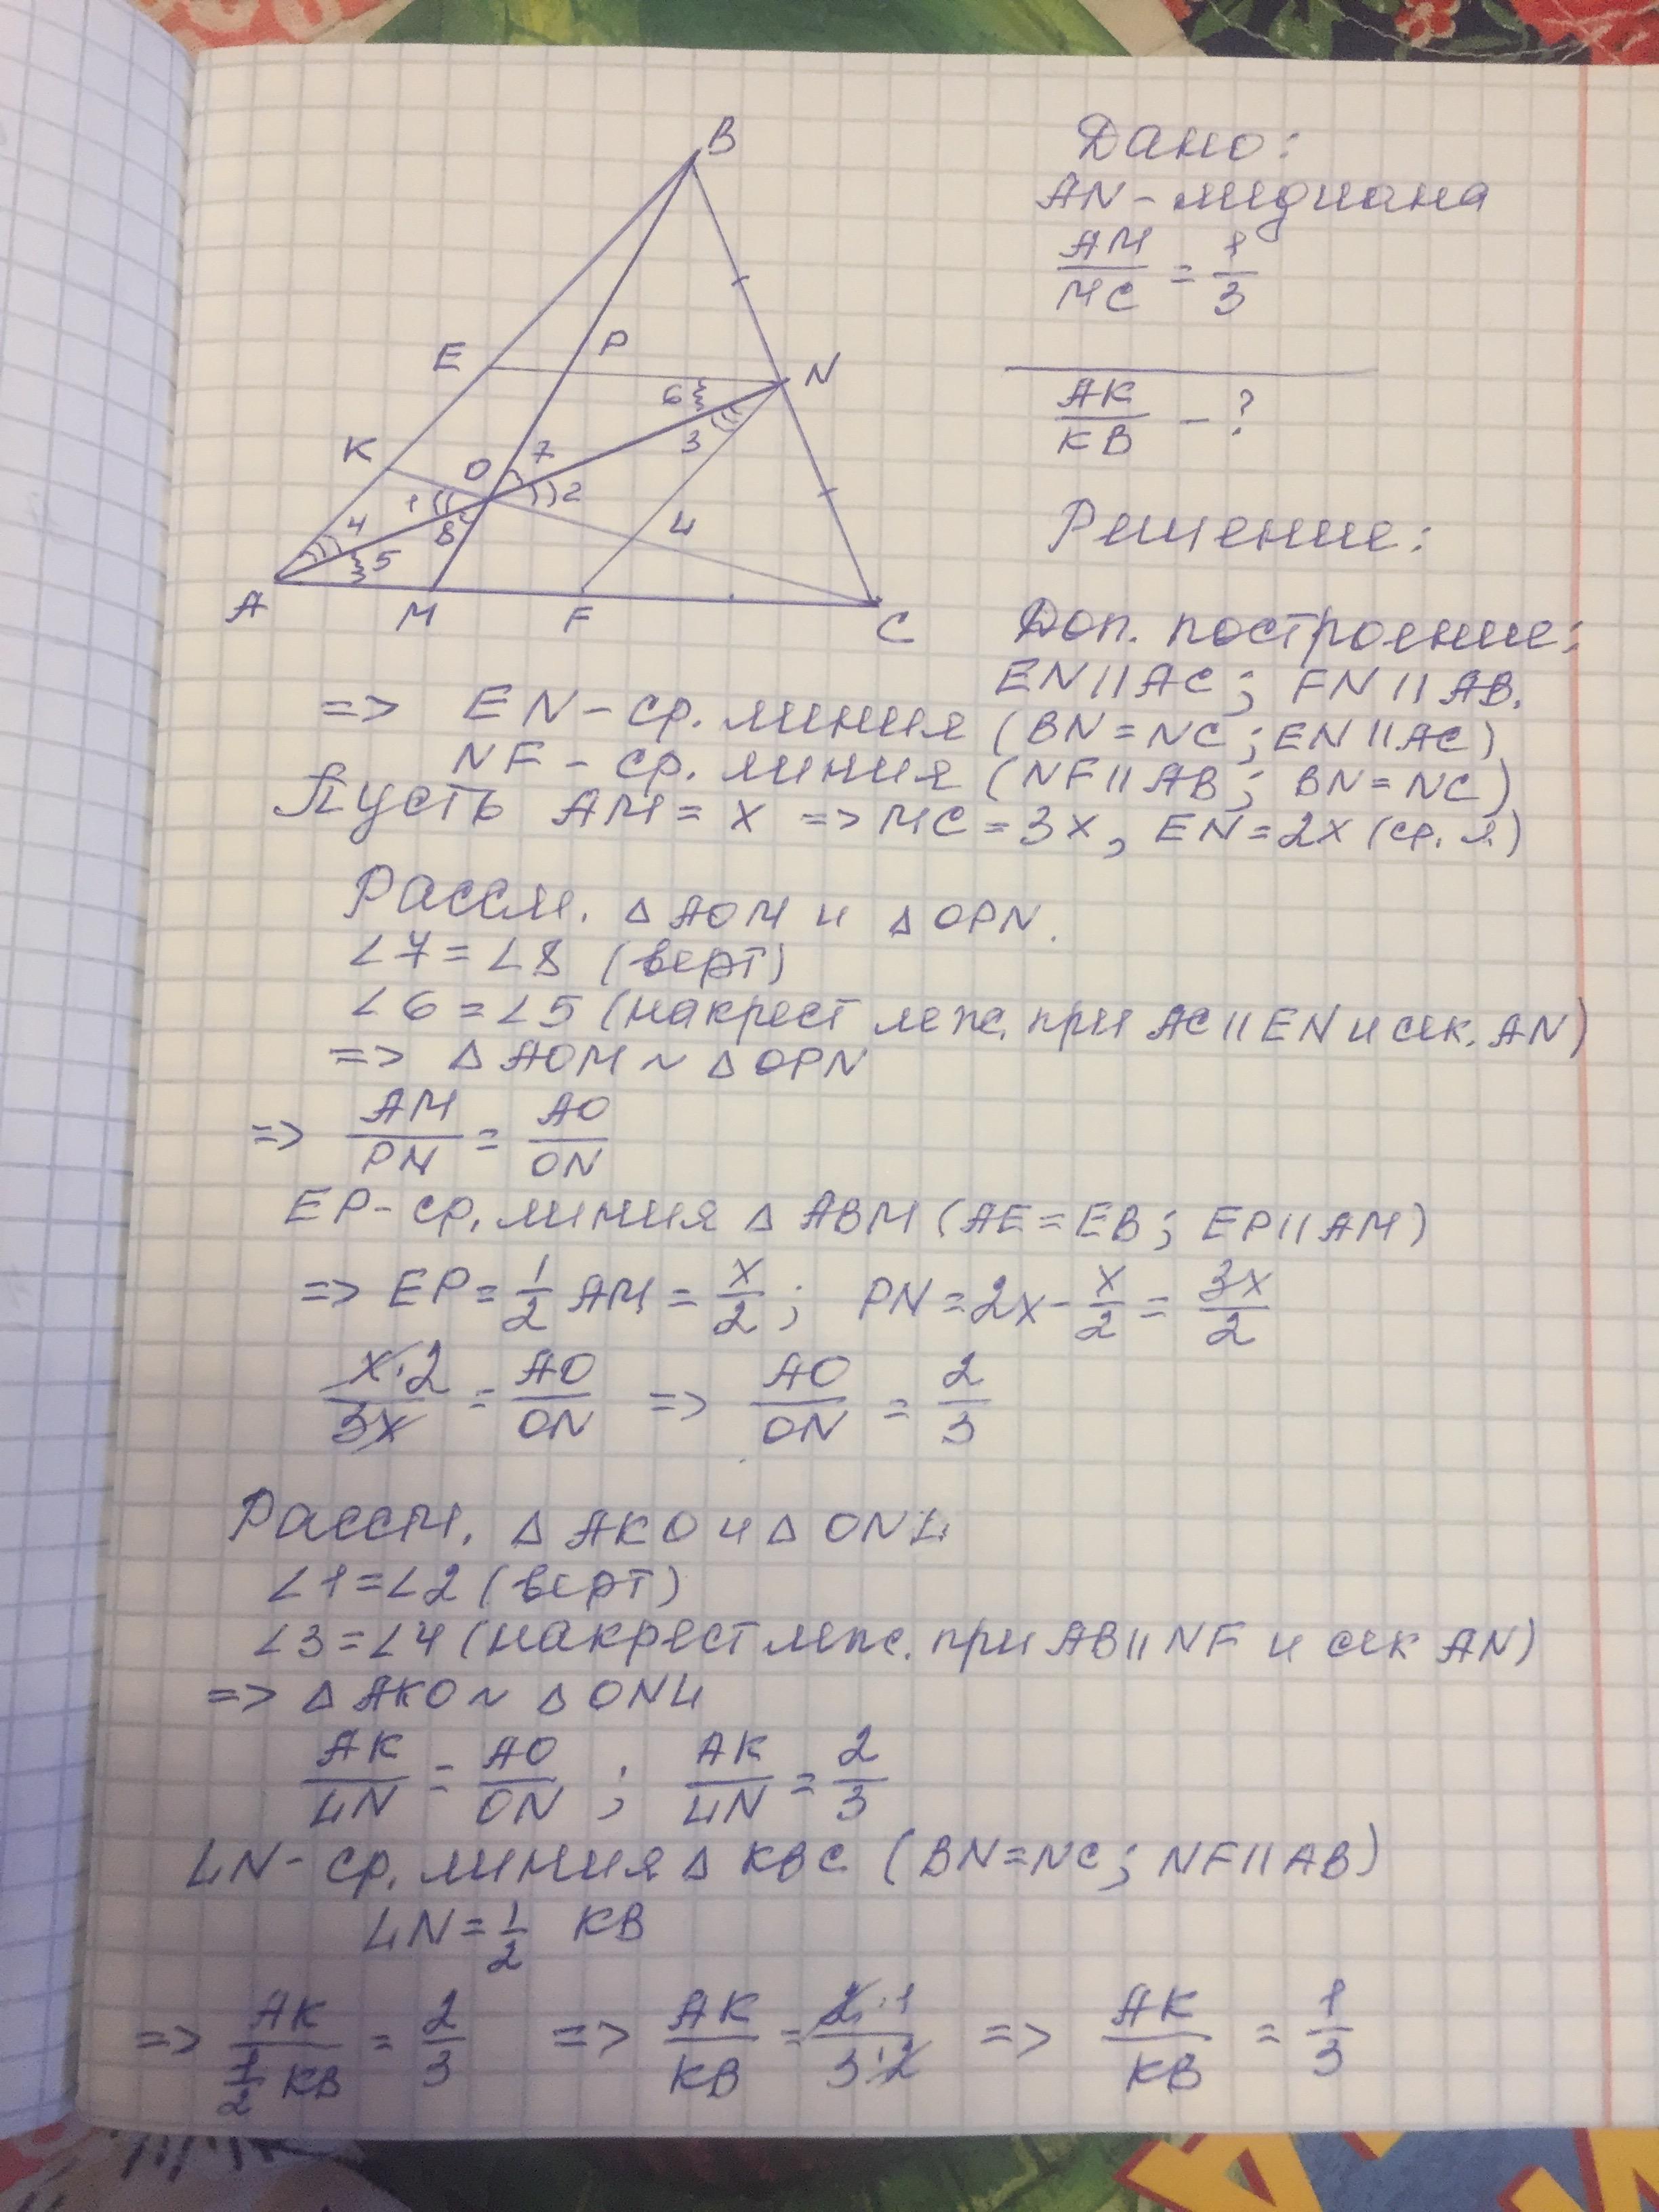 B
E
P
N
K
O
7
6
3
1
2
4
8
5
L
A
M
F
C
Дано:
AN - мидиана
AM/MC = 1/3
AK/KB - ?
Решение:
Доп. построение:
EN || AC; FN || AB.
=> EN - ср. линия (BN = NC; EN || AC)
NF - ср. линия (NF || AB; BN = NC)
Пусть AM = x => MC = 3x, EN = 2x (ср. л.)
Рассм. △ AOM и △ OPN.
∠7 = ∠8 (верт)
∠6 = ∠5 (накрест леж. при AC || EN и сек. AN)
=> △ AOM ~ △ OPN
=> AM/PN = AO/ON
EP - ср. линия △ ABM (AE = EB; EP || AM)
=> EP = 1/2 AM = x/2; PN = 2x - x/2 = 3x/2
x·2/3x = AO/ON => AO/ON = 2/3
Рассм. △ AKO и △ ONL
∠1 = ∠2 (верт)
∠3 = ∠4 (накрест леж. при AB || NF и сек AN)
=> △ AKO ~ △ ONL
AK/LN = AO/ON; AK/LN = 2/3
LN - ср. линия △ KBC (BN = NC; NF || AB)
LN = 1/2 KB
=> AK/(1/2 KB) = 2/3 => AK/KB = 2·1/3·2 => AK/KB = 1/3